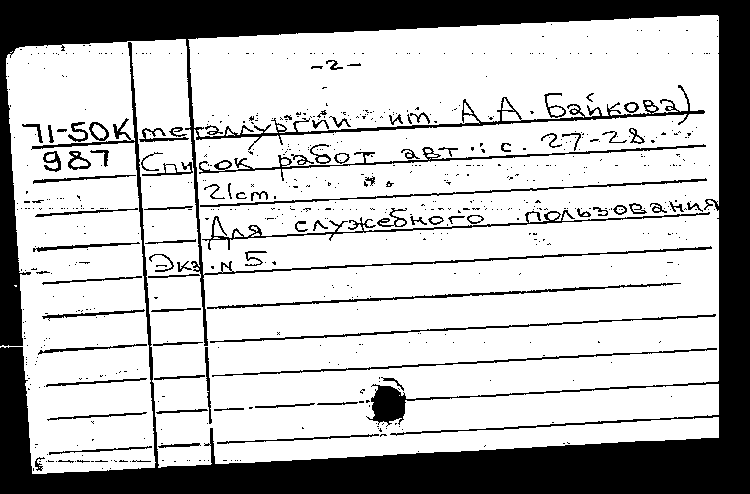 -2-
71-50К металлургии им. А.А. Байкова)
987 Список работ авт.: с. 27-28.
21см.
Для служебного пользования
Экз. N 5.